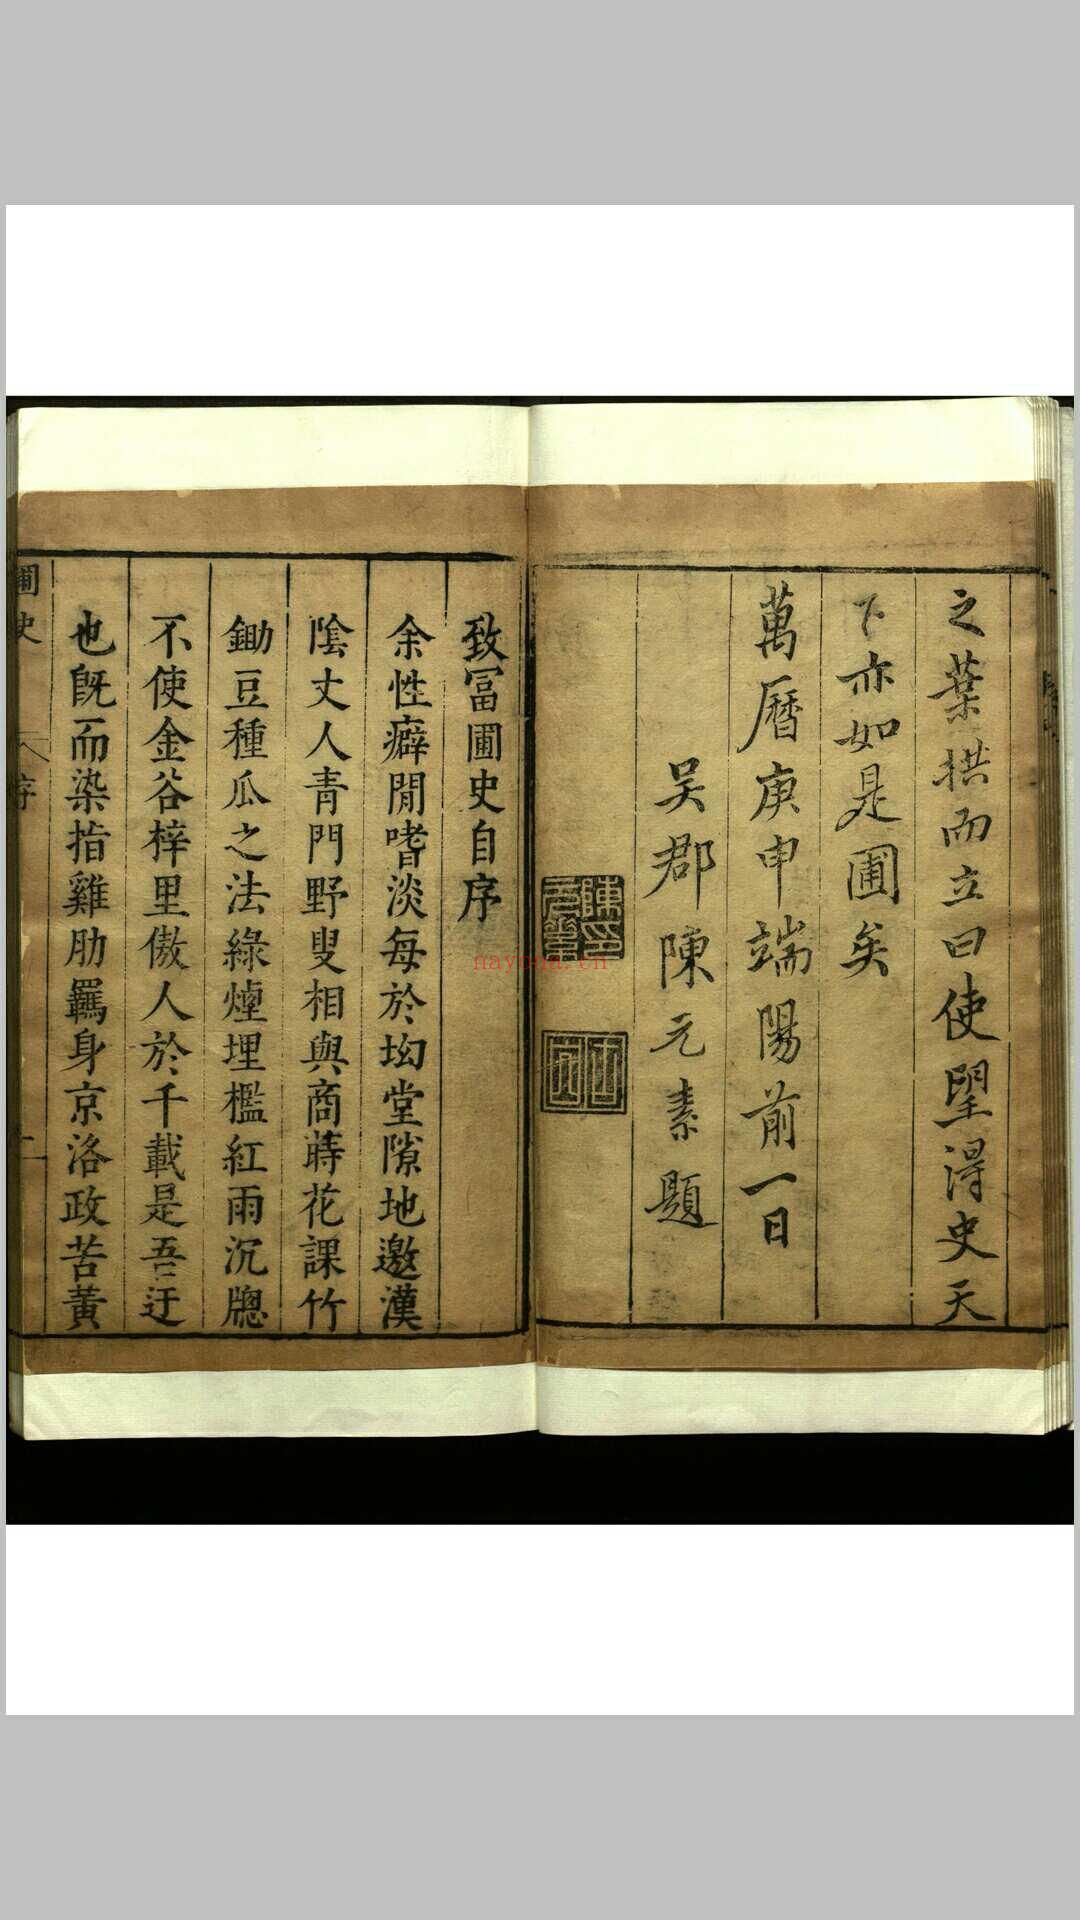 之葉拱而立曰使望得史天
下亦如是圃矣
萬曆庚申端陽前一日
吴郡陳元素題
致冨圃史自序
余性癖閒嗜淡每於坳堂隙地邀漢
陰丈人青門野叟相與商蒔花課竹
鋤豆種瓜之法綠煙埋檻紅雨沉牕
不使金谷梓里傲人於千載是吾迂
也旣而染指雞肋羈身京洛政苦黃
圃史
序
二
nayona.cn